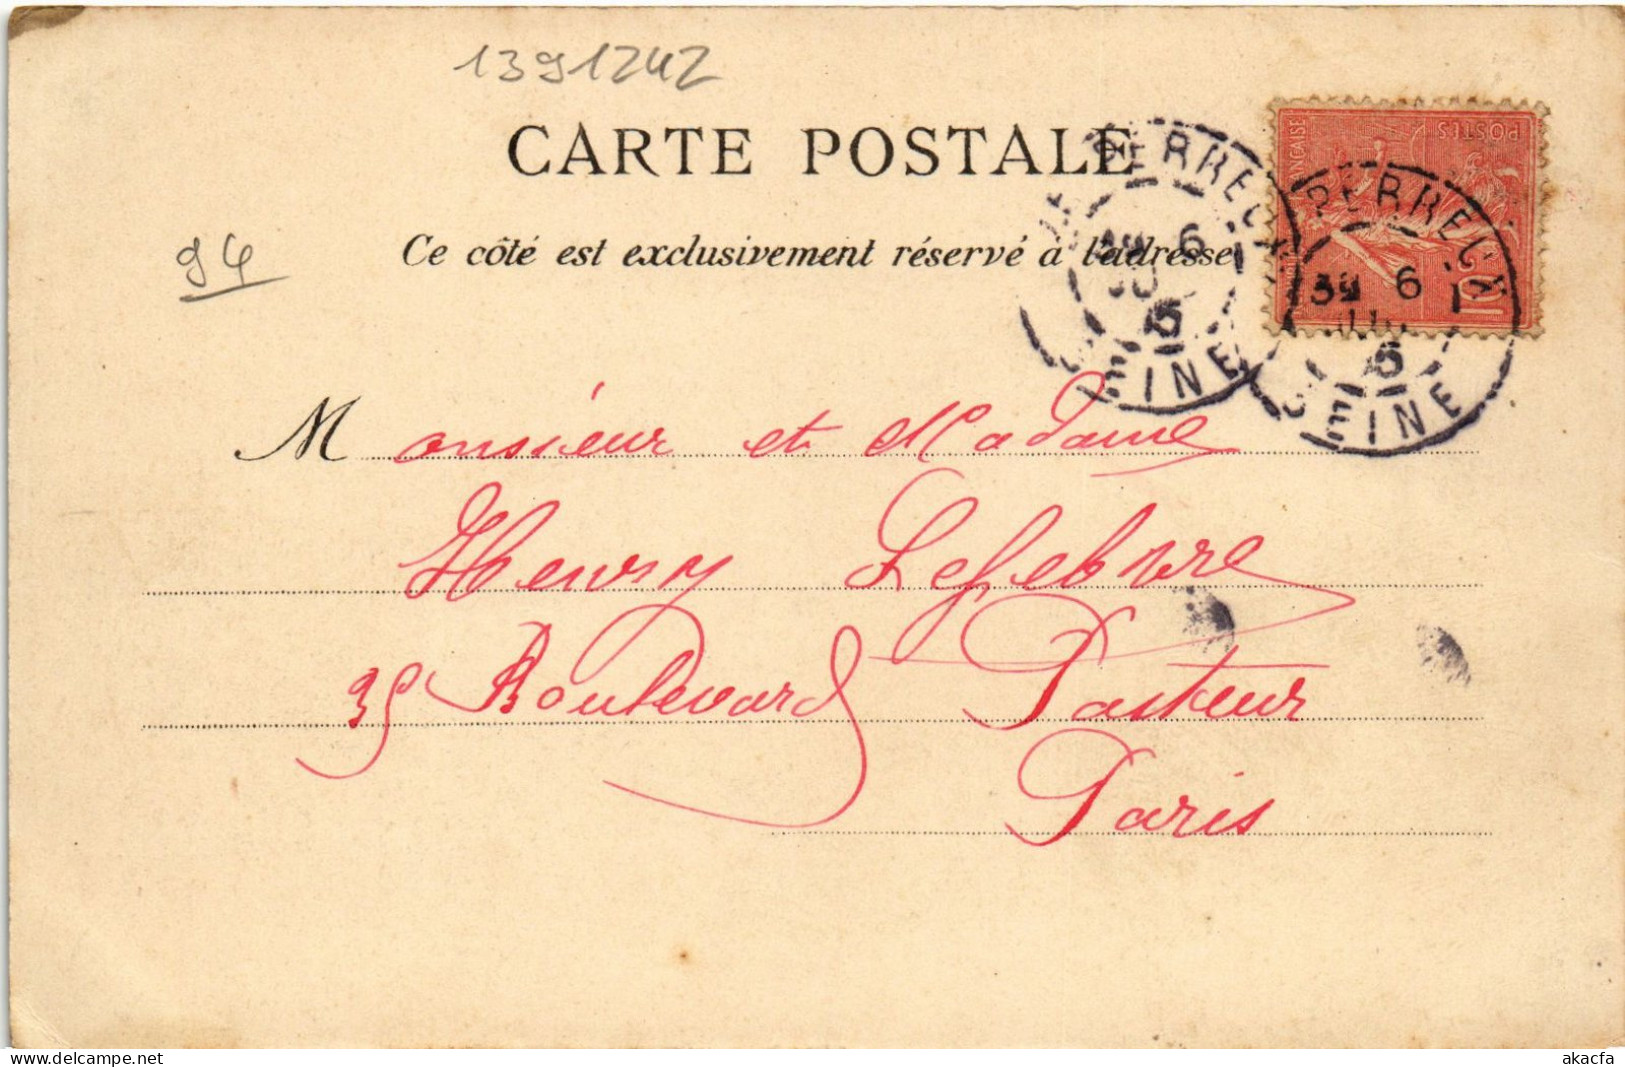 1391242
CARTE POSTALE
94
Ce côté est exclusivement réservé à l'adresse
POSTES
10
PERREUX
6
5
SEINE
PERREUX
39 6
5
SEINE
Monsieur et Madame
Henry Lefebvre
35 Boulevard Pasteur
Paris
delcampe.net
akacfa